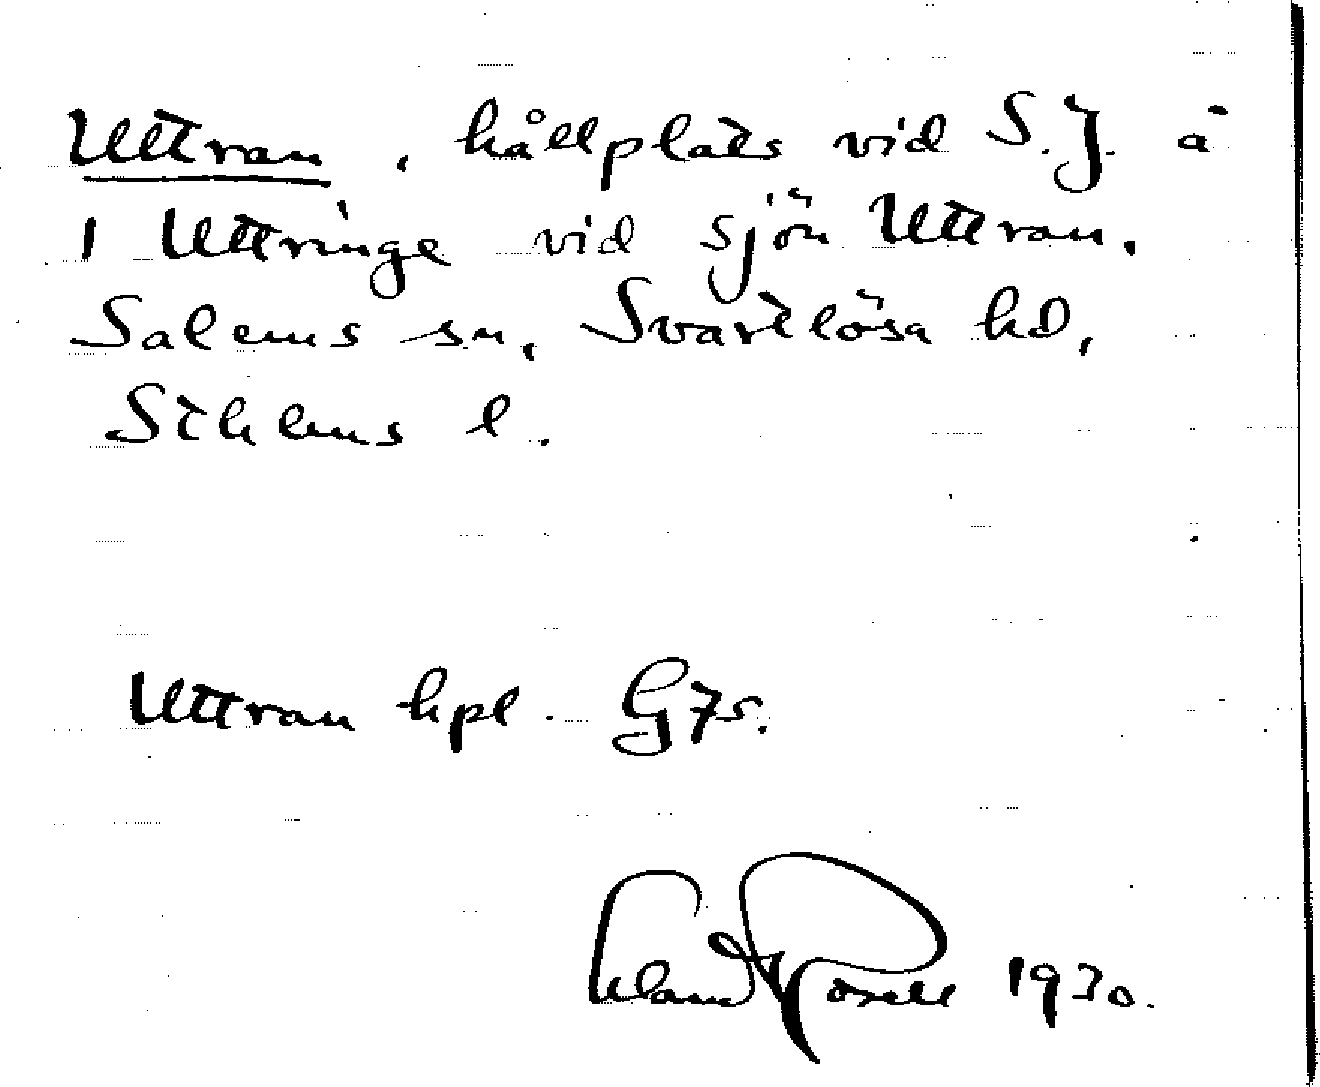 Uttran, hållplats vid S.J. å
1 Uttringe vid sjön Uttran,
Salems sn, Svartlösa hd,
Sthlms l.
Uttran hpl. G 75.
Erland Rosell 1930.